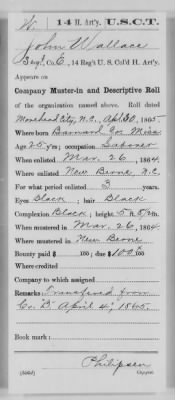 W. 14 H. Art'y. U.S.C.T.
John Wallace
Serg't, Co. E, 14 Reg't U. S. Col'd H. Art'y.
Appears on
Company Muster-in and Descriptive Roll
of the organization named above. Roll dated
Morehead City, N.C., Apl 30, 1865.
Where born Co. Miss
Age 25 y'rs; occupation Laborer
When enlisted Mar. 26, 1864.
Where enlisted New Berne, N.C.
For what period enlisted 3 years.
Eyes Black; hair Black
Complexion Black; height 5 ft. in.
When mustered in Mar. 26, 1864
Where mustered in New Berne
Bounty paid $ 100; due $ 100
Where credited
Company to which assigned
Remarks: Transferred from
Co. "B" April 4", 1865.
Book mark:
Philipsen
Copyist.